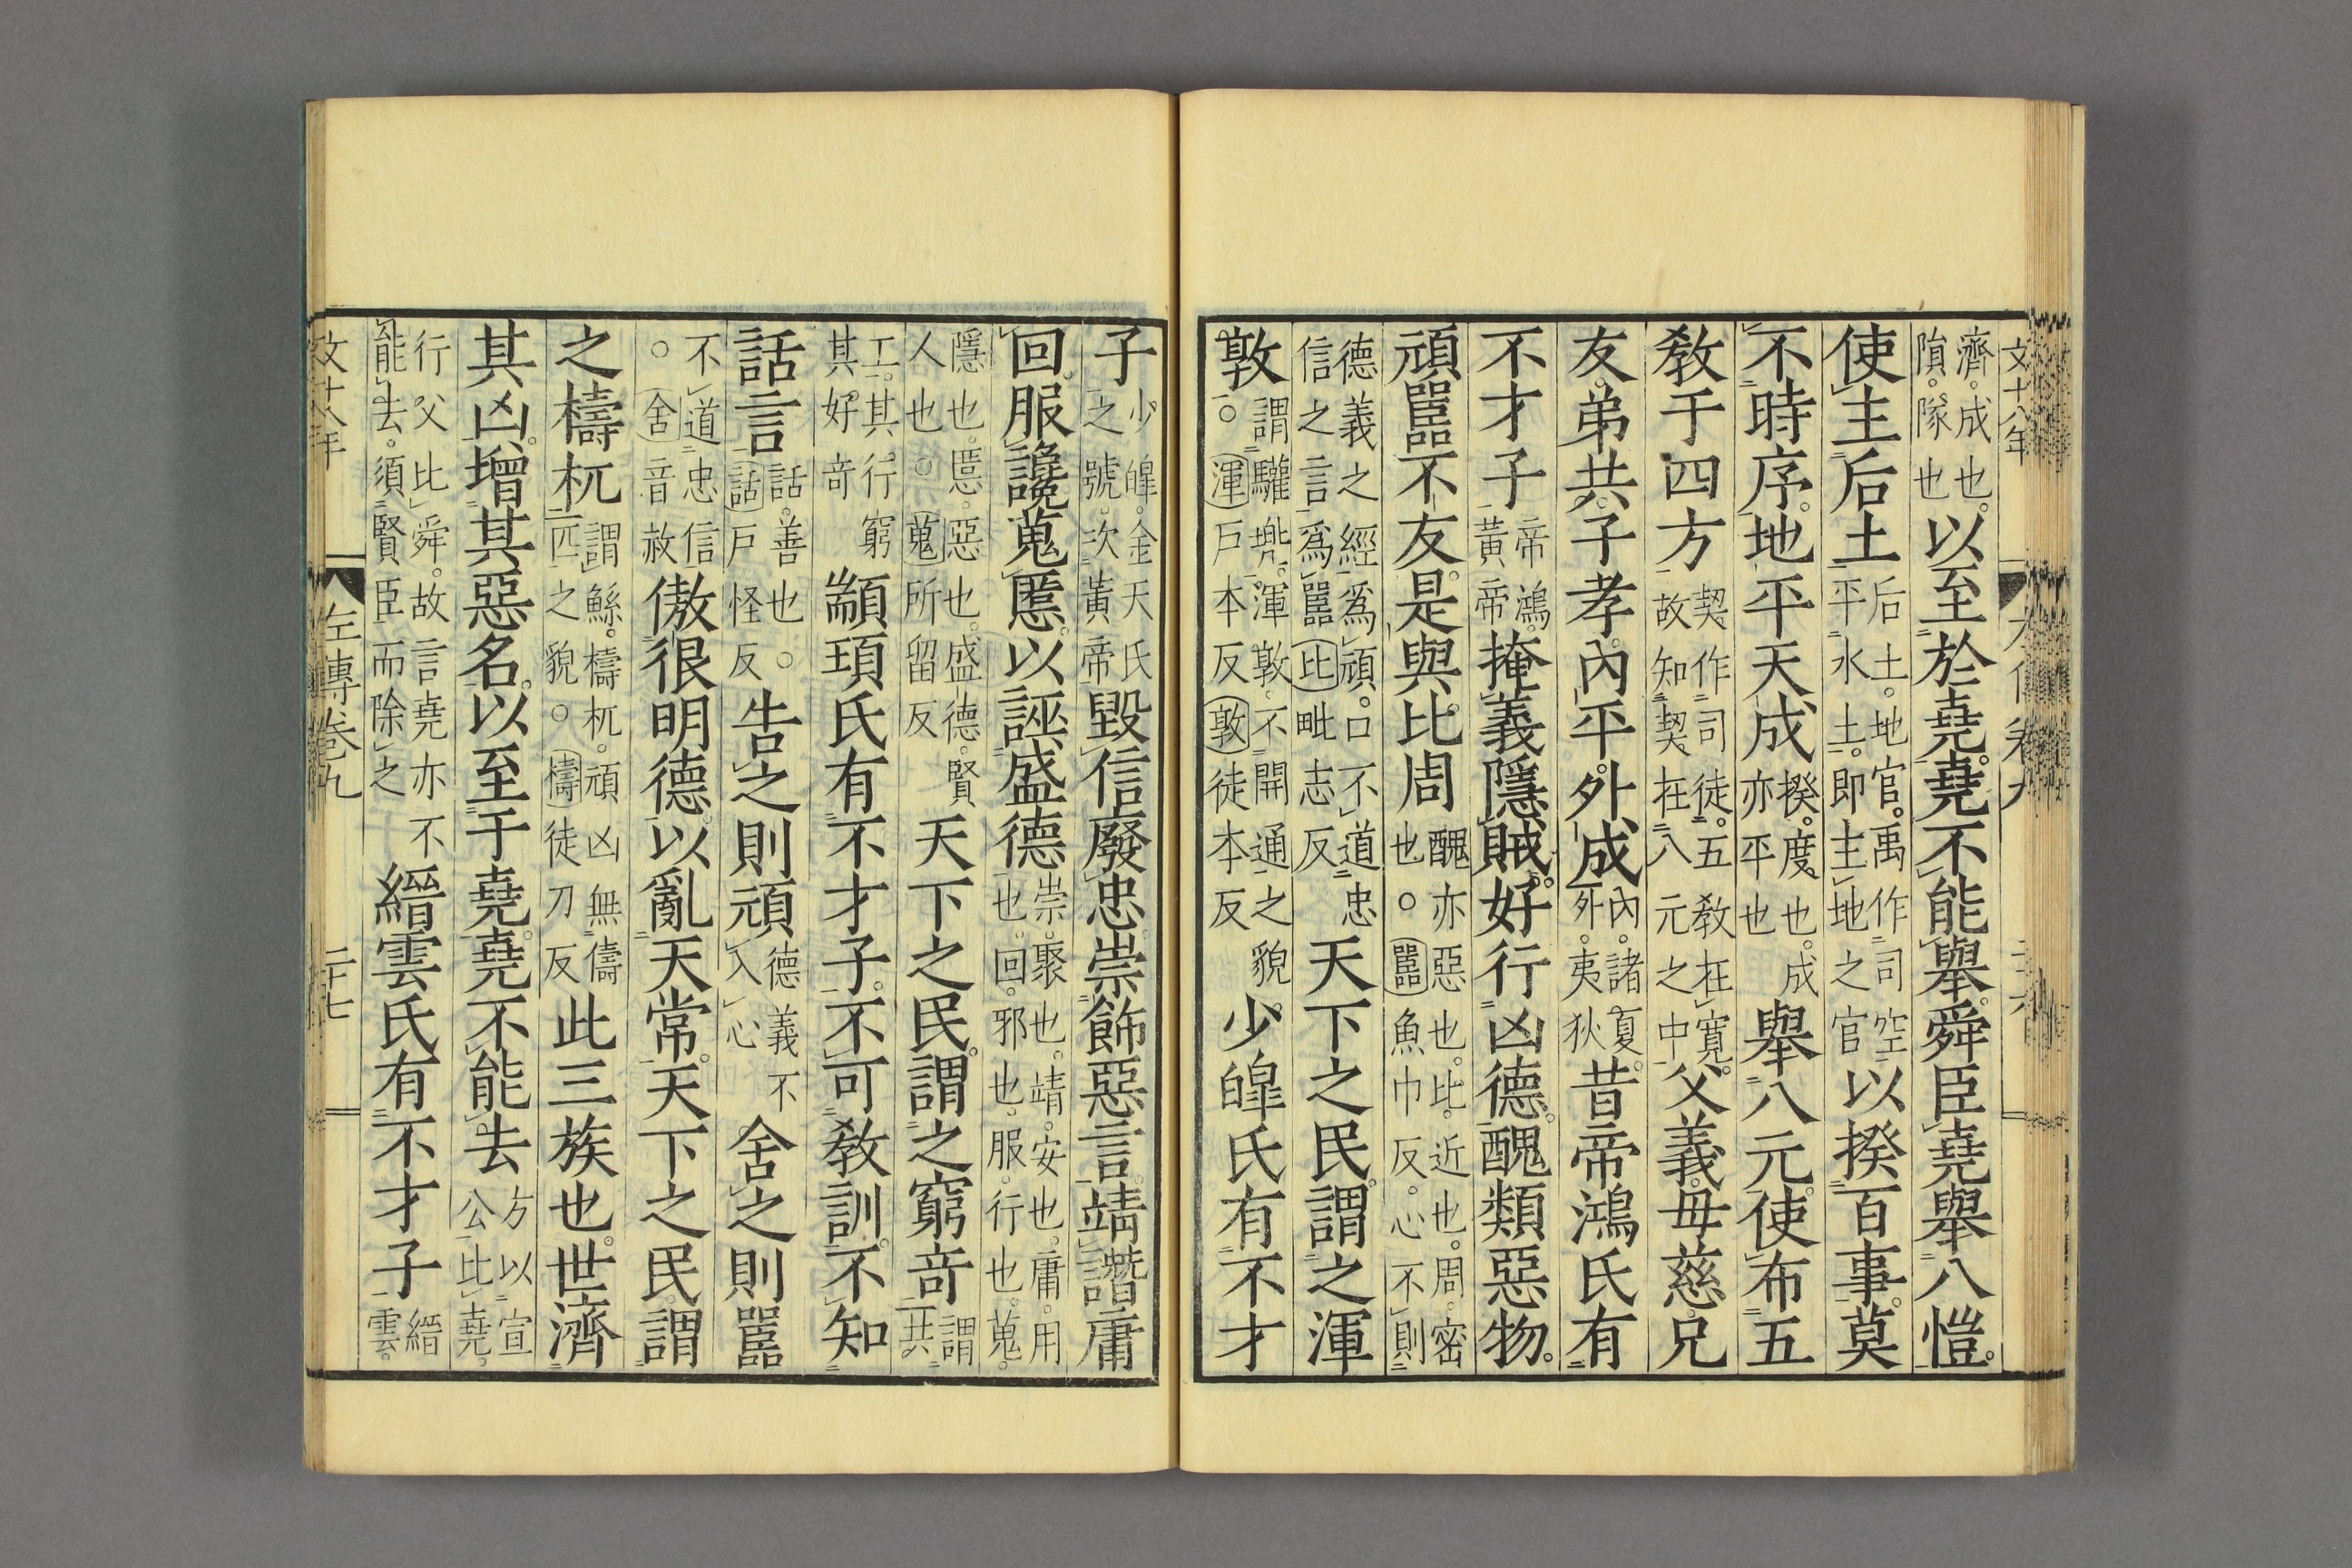 濟。成也。隕。隊也。以至於堯。堯不能舉。舜臣堯舉八愷。
使主后土后土。地官。禹作司空平水土。即主地之官以揆百事。莫
不時序。地平天成揆。度也。成亦平也舉八元。使布五
敎于四方契作司徒。五敎在寬。故知契在八元之中父義。毋慈。兄
友。弟共。子孝。內平。外成內。諸夏。外。夷狄昔帝鴻氏有
不才子帝鴻。黃帝掩義隱賊。好行凶德。醜類惡物。
頑嚚不友。是與比周醜亦惡也。比。近也。周。密也。○嚚魚巾反。心不則
德義之經爲頑。口不道忠信之言爲嚚比毗志反天下之民。謂之渾
敦謂驩兠。渾敦。不開通之貌。○渾戸本反敦徒本反少皥氏有不才
子少皥。金天氏之號。次黃帝毀信廢忠。崇飾惡言。靖譖庸
回。服讒蒐慝。以誣盛德崇。聚也。靖。安也。庸。用也。回。邪也。服。行也。蒐。
隱也。慝。惡也。盛德。賢人也○蒐所留反天下之民。謂之窮竒謂共。
工。其行窮其好竒顓頊氏有不才子。不可敎訓。不知
話言話。善也。○話戸怪反告之則頑德義不入心舍之則嚚
不道忠信○舍音赦傲很明德。以亂天常。天下之民。謂
之檮杌謂鯀。檮杌。頑凶無儔匹之貌○檮徒刀反此三族也。世濟
其凶。增其惡名。以至于堯。堯不能去方以宣公比堯。
行父比舜。故言堯亦不能去。須賢臣而除之縉雲氏有不才子縉雲。
文十八年
左傳卷九
二十七